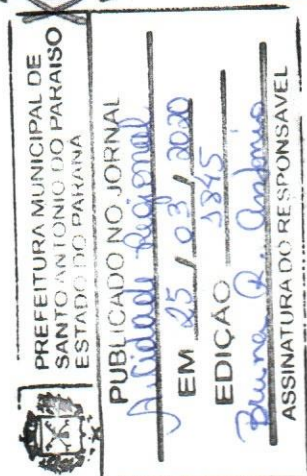 PREFEITURA MUNICIPAL DE
SANTO ANTONIO DO PARAISO
ESTADO DO PARANÁ
PUBLICADO NO JORNAL
Regional
EM 25 / 03 / 2020
EDIÇÃO 1845
Bruna R. Antonio
ASSINATURA DO RESPONSAVEL